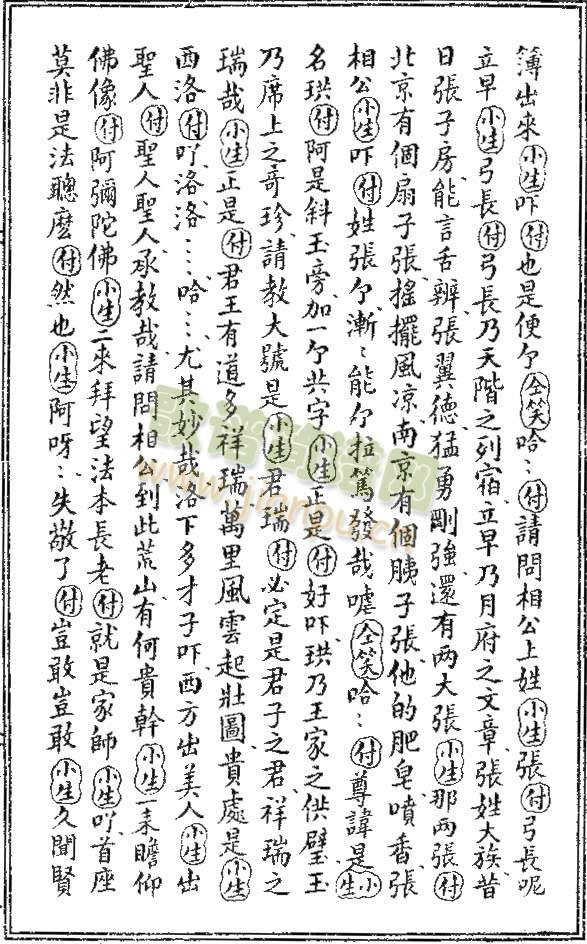 簿出來小生吓付也是便个仝笑哈〻付請問相公上姓小生張付弓長呢
立早小生弓長付弓長乃天階之列宿立早乃月府之文章張姓大族昔
日張子房能言舌辨張翼德猛勇剛強還有两大張小生那两張付
北京有個扇子張搖擺風凉南京有個胰子張他的肥皂噴香張
相公小生吓付姓張个漸〻能个拉篤發哉嘘仝笑哈〻付尊諱是小生
名珙付阿是斜玉旁加一个共字小生正是付好吓珙乃王家之供璧玉
乃席上之奇珍請教大號是小生君瑞付必定是君子之君祥瑞之
瑞哉小生正是付君王有道多祥瑞萬里風雲起壯圖貴處是小生
西洛付吖洛洛〻〻哈〻〻尤其妙哉洛下多才子吓西方出美人小生出
聖人付聖人聖人承教哉請問相公到此荒山有何貴幹小生一來瞻仰
佛像付阿彌陀佛小生二來拜望法本長老付就是家師小生吖首座
莫非是法聰麽付然也小生阿呀〻失敬了付豈敢豈敢小生久聞賢
歌谱简谱网
www.jianpu.cn